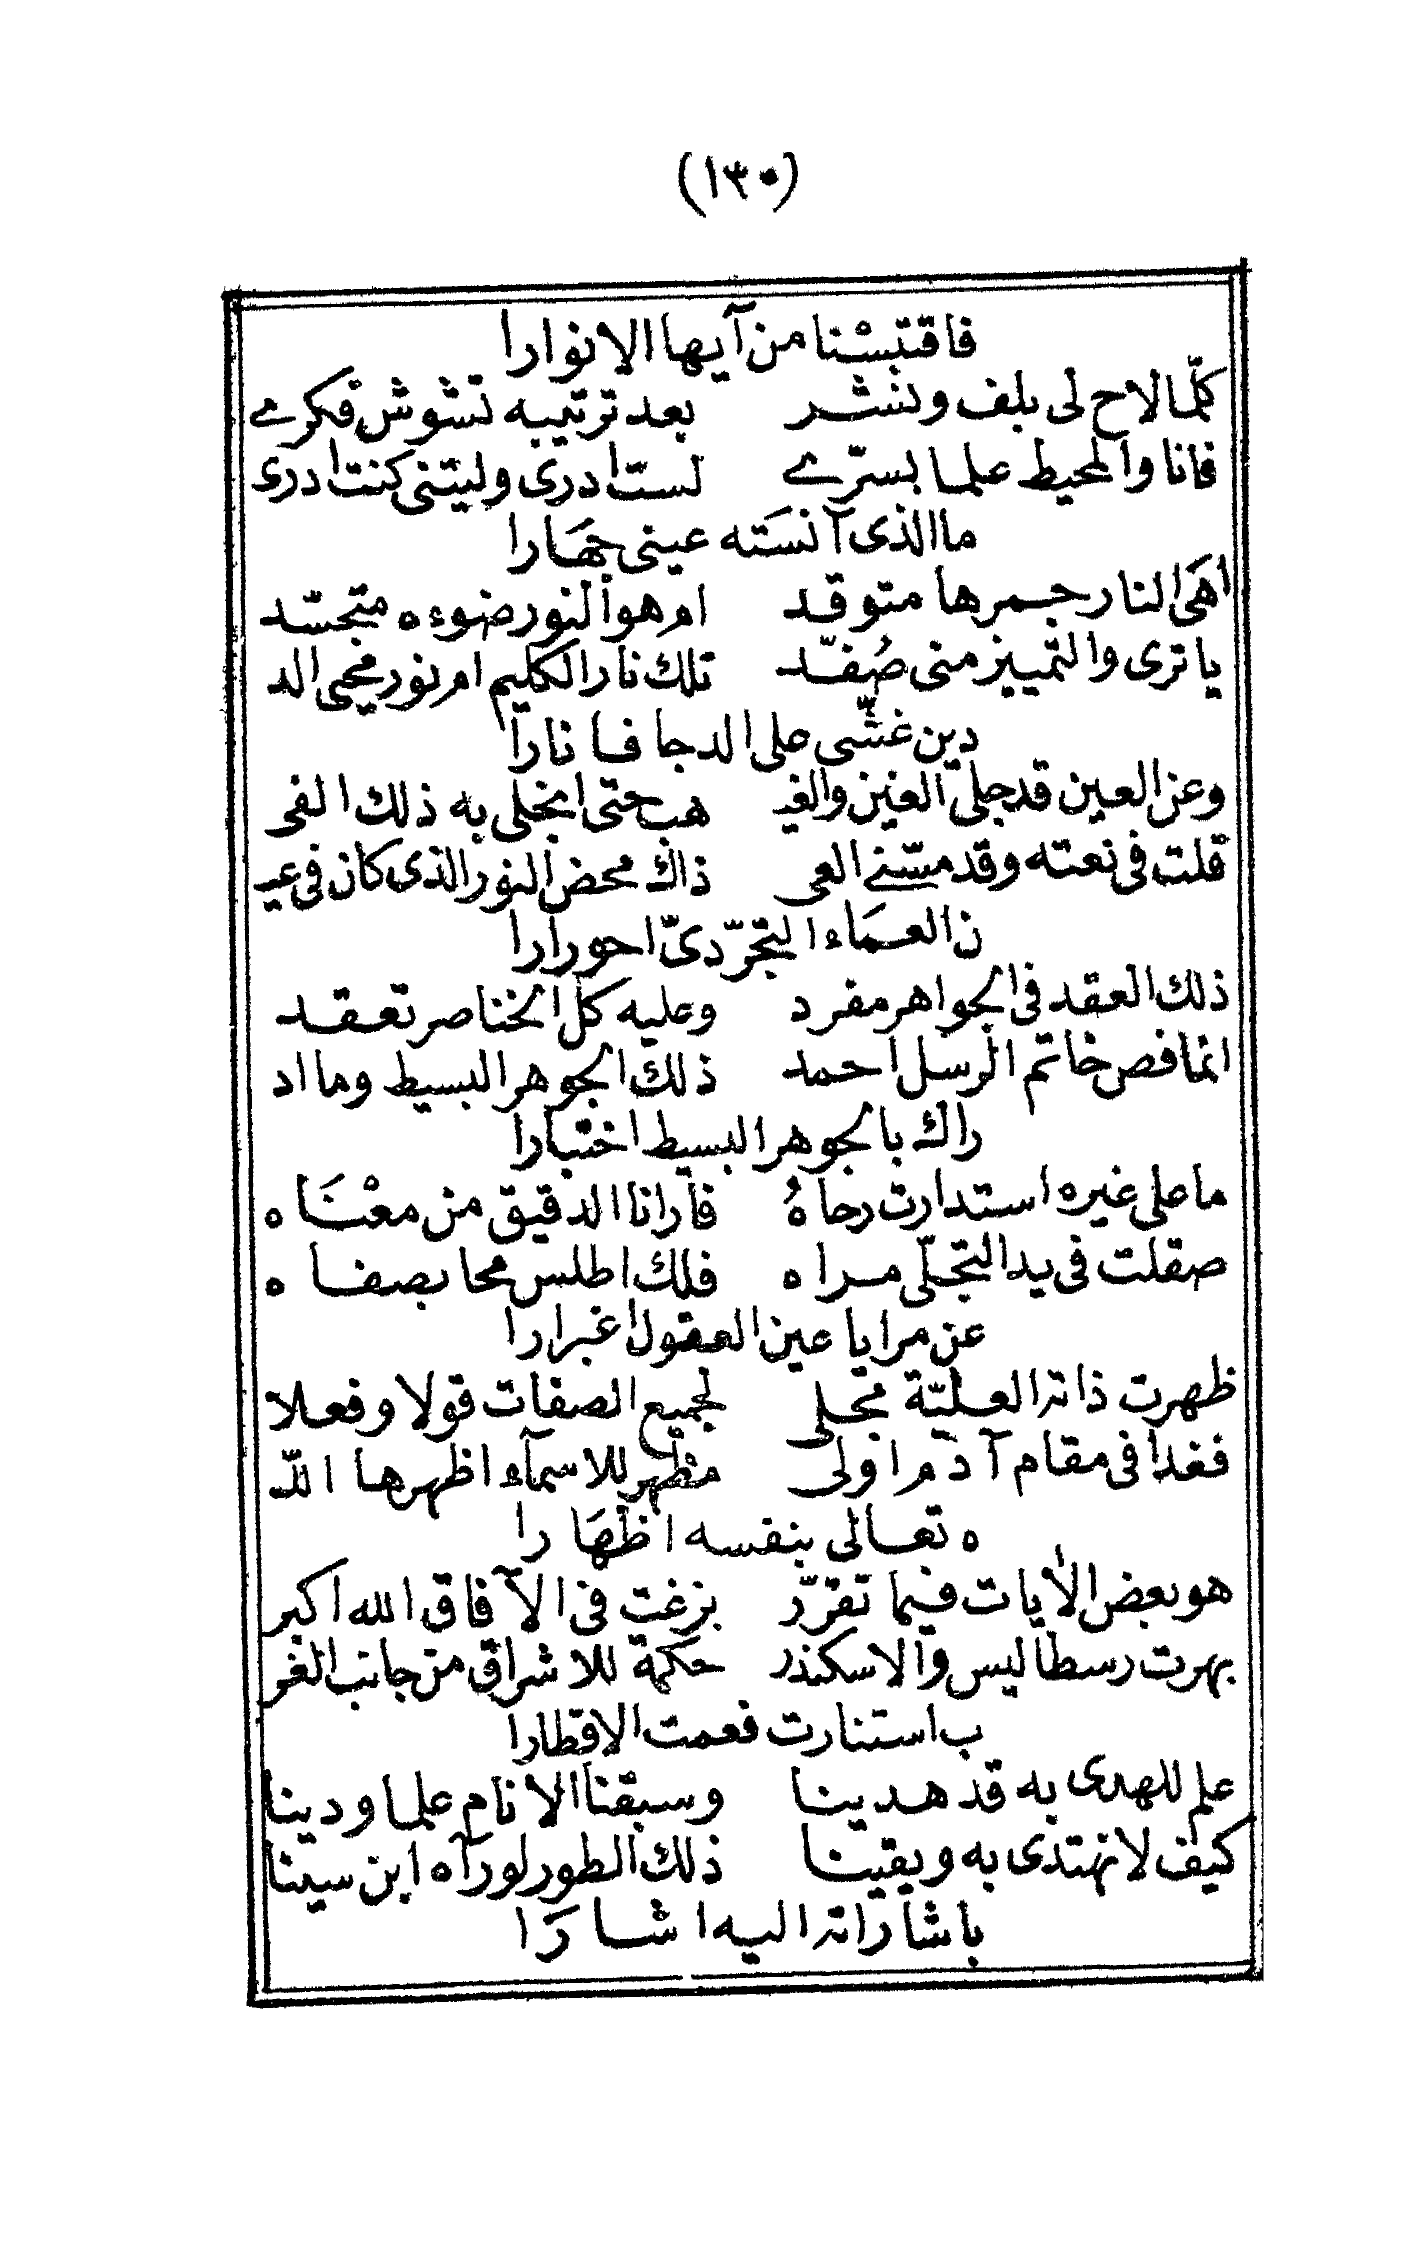 (١٣٠)
فاقتبسْنا من آيها الانوارا
كلّما لاح لى بلف ونشر بعد ترتيبه تشوش فكرے
فانا والمحيط علما بسرّے لست ادرى وليتنى كنت ادرى
ما الذى آنسَته عينى جهَارا
اهَى النار جمرها متوقد ام هو النور ضوءه متجسّد
يا ترى والتمييز منى صُفّد تلك نار الكليم ام نور محيى الد
دين غشّى على الدجا فانارا
وعن العين قد جلى الغين والغيـ هب حتى انجلى به ذلك الفى
قلت فى نعته وقد مسّنے العى ذاك محض النور الذى كان فى عيـ
ن العمَاء التجرّدىّ احورارا
ذلك العقد فى الجواهر مفرد وعليه كل الخناصر تعقد
انما فص خاتم الرسل احمد ذلك الجوهر البسيط وما اد
راك بالجوهر البسيط اختبارا
ما على غيره استدارت رحاهُ فارانا الدقيق من معْنَاه
صقلت فى يد التجلّى مراه فلك اطلس محا بصفاه
عن مرايا عين العقول اغبرارا
ظهرت ذاته العليّة مجلى لجميع الصفات قولا وفعلا
فغدا فى مقام آدم اولى مظهر للاسمآء اظهرها اللّـ
ه تعالى بنفسه اظهَارا
هو بعض الاٰيات فيما تقرّر بزغت فى الآفاق الله اكبر
بهرت رسطاليس والاسكندر حكمة للاشراق من جانب الغر
ب استنارت فعمت الاقطارا
علم للهدى به قد هدينا وسبقنا الانام علما ودينا
كيف لا نهتدى به ويقينا ذلك الطور لو رآه ابن سينا
باشاراته اليه اشارَا